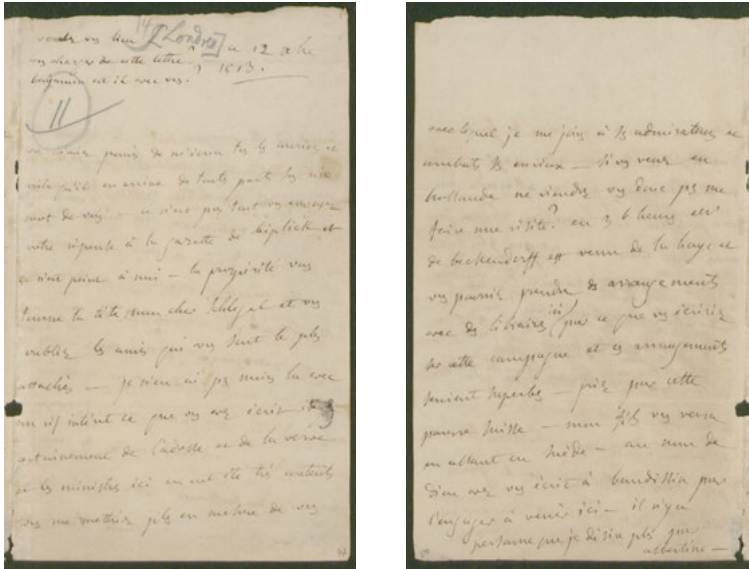 voulez vous bien [Londres] ce 12 xbre
vous charger de cette lettre? 1813.
benjamin est il avec vous.
11
vous m'aviez promis de m'écrire tous les courriers et
voilà qu'il en arrive de toutes parts sans un
mot de vous — ce n'est pas tout vous envoyez
votre réponse à la gazette de Leipsick et
ce n'est point à moi — la prospérité vous
tourne la tête mon cher Schlegel et vous
oubliez les amis qui vous sont le plus
attachés — je n'en ai pas moins lu avec
un vif intérêt ce que vous avez écrit il y a
certainement de l'adresse et de la verve
et les ministres ici en ont été très contents
vous me mettriez plus en mesure de vous
avec lequel je me joins à vos admirateurs et
combats vos envieux — si vous venez en
hollande ne viendrez vous donc pas me
faire une visite? en 36 heures
de beckendorff est venu de la haye et
vous pourriez prendre des arrangements
avec des libraires ici pour ce que vous écririez
sur cette campagne et ces arrangements
seraient superbes — priez pour cette
pauvre Suisse — mon fils vous verra
en allant en Suède — au nom de
Dieu avez vous écrit à baudissin pour
l'engager à venir ici — il n'y a
personne que je désire plus pour
albertine —